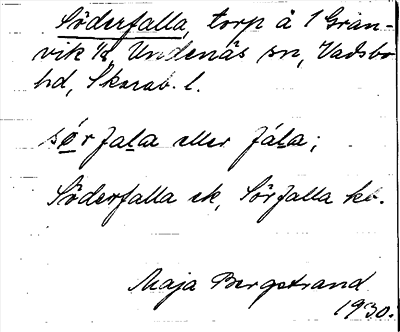 Söderfalla, torp å 1 Gran-
vik 1/2, Undenäs sn, Vadsbo
hd, Skarab. l.
sö́rfala eller fála;
Söderfalla ek, Sörfalla kb.
Maja Bergstrand
1930.